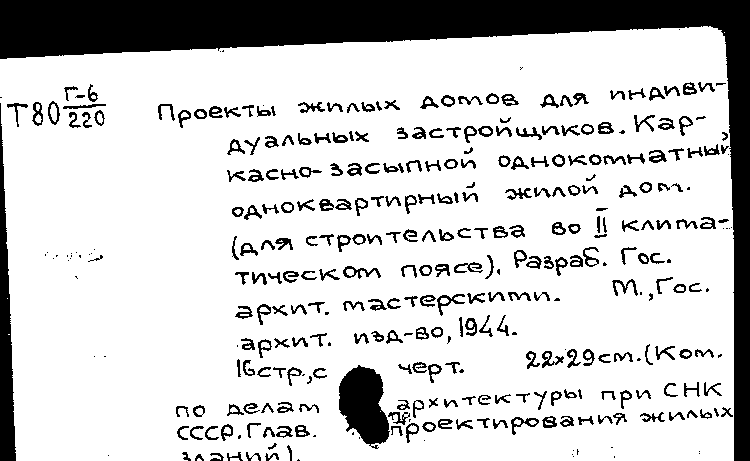 Т80 Г-6/220 Проекты жилых домов для индиви-
дуальных застройщиков. Кар-
касно-засыпной однокомнатный
одноквартирный жилой дом.
(для строительства во II клима-
тическом поясе). Разраб. Гос.
архит. мастерскими. М., Гос.
архит. изд-во, 1944.
16стр., с черт. 22×29см. (Ком.
по делам архитектуры при СНК
СССР. Глав. проектирования жилых
зданий).